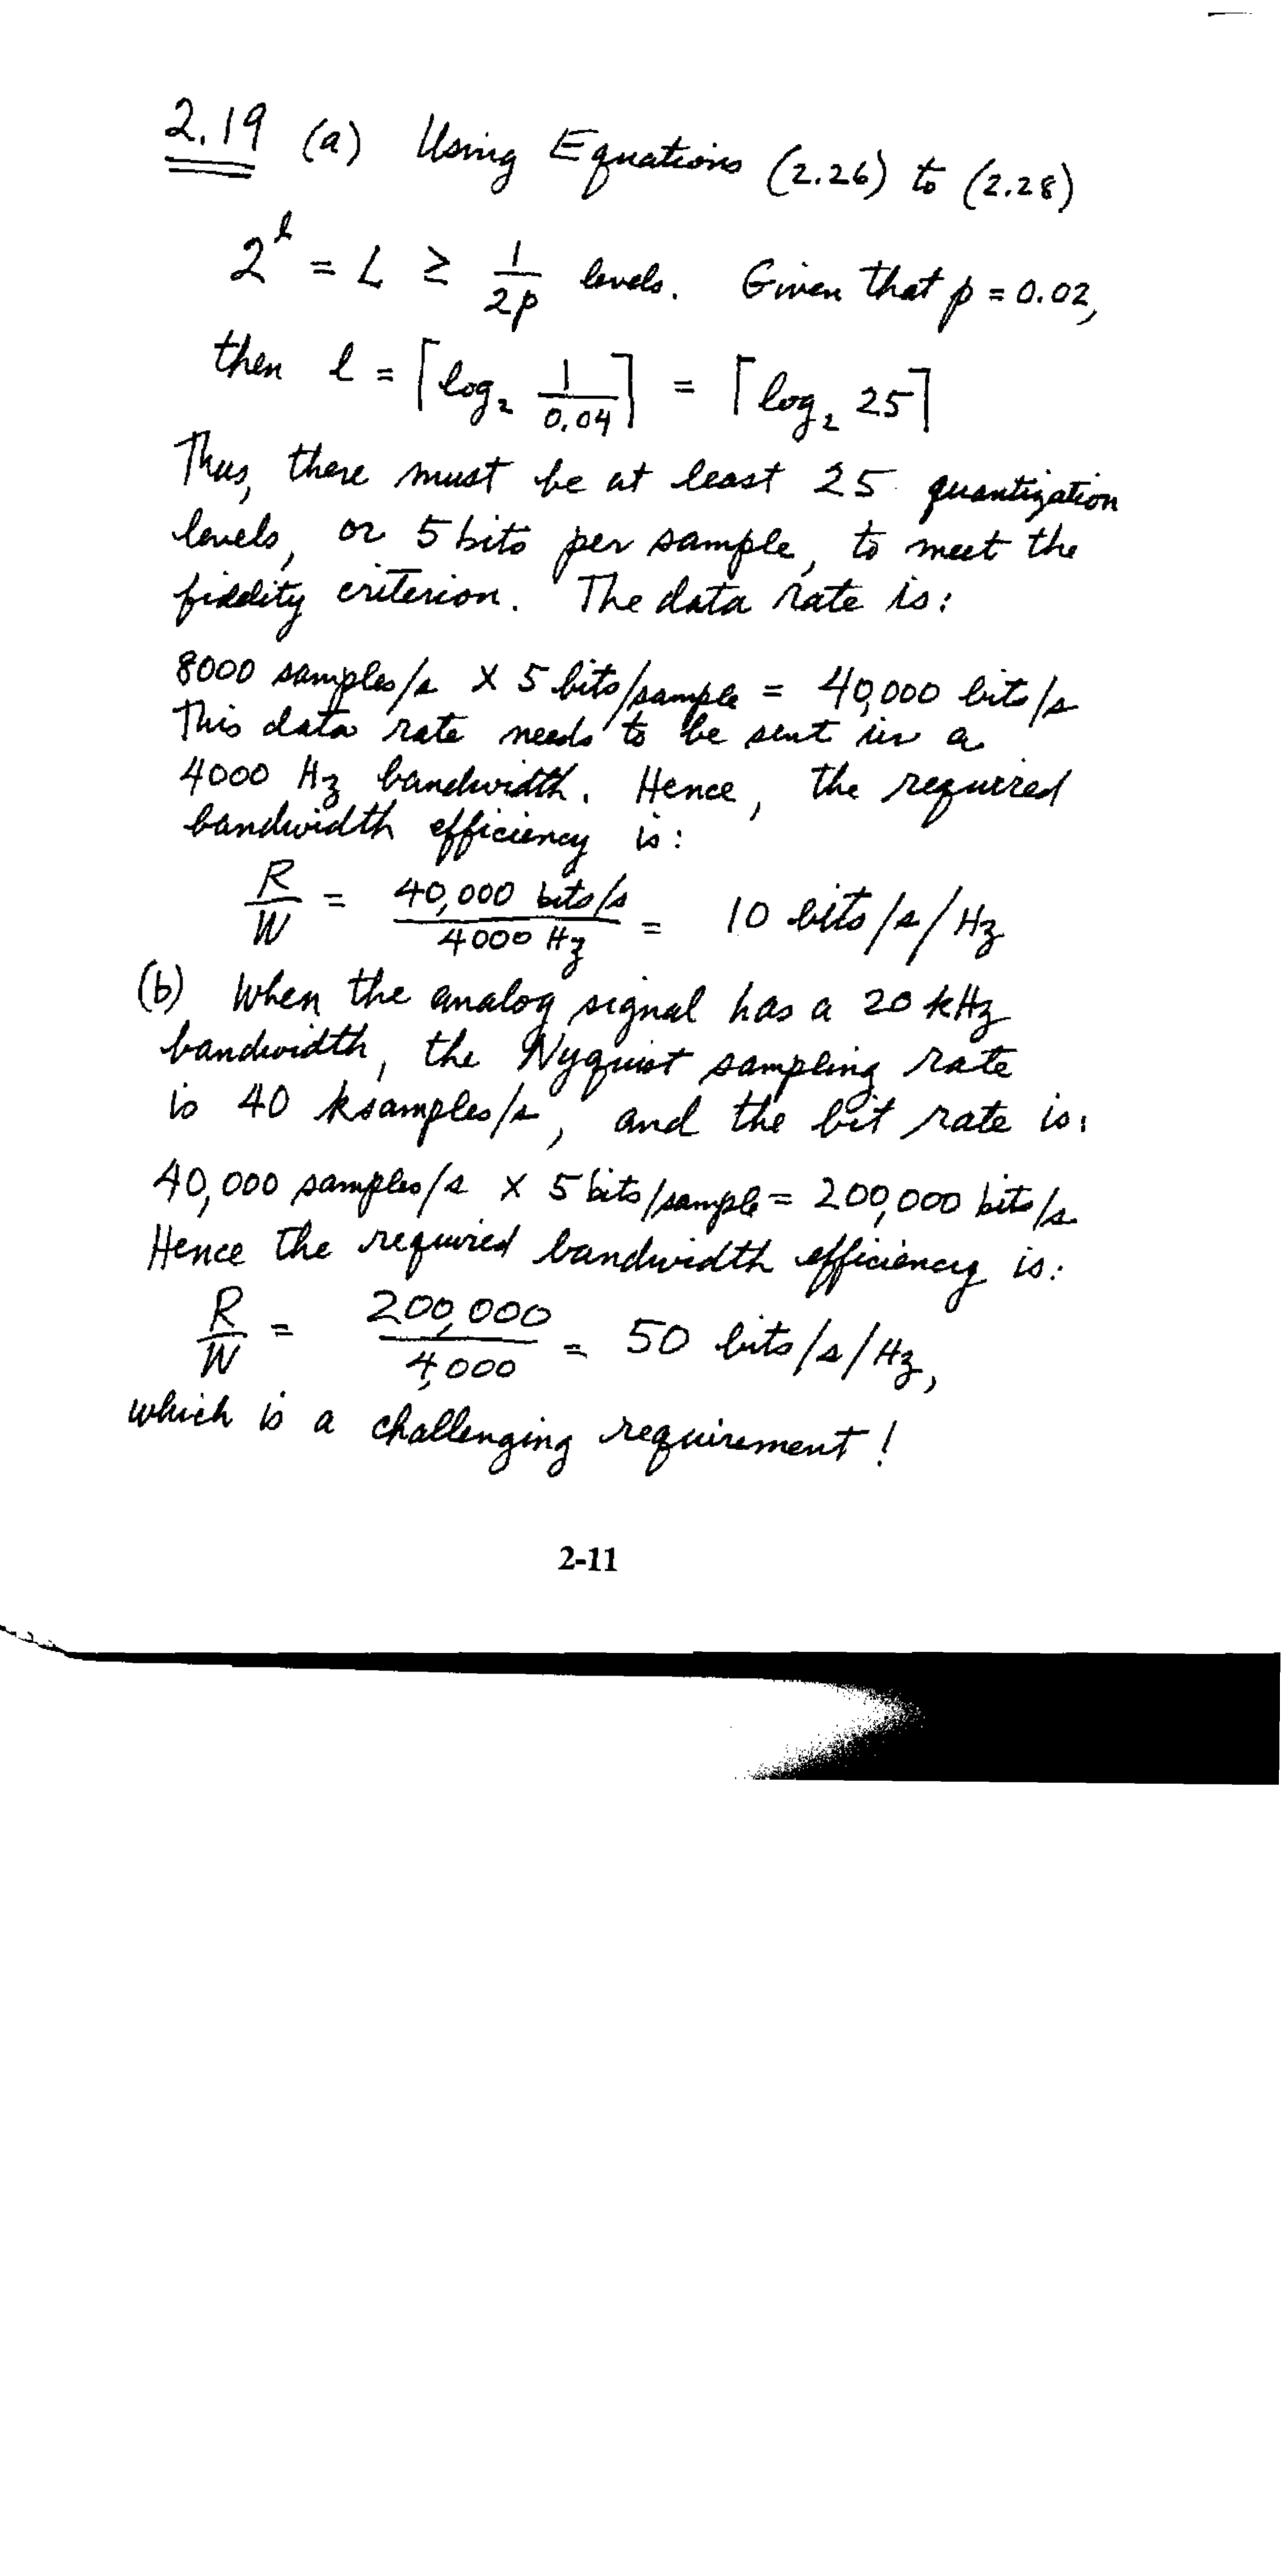 2.19 (a) Using Equations (2.26) to (2.28)
2^l = L ≥ 1/2p levels. Given that p = 0.02,
then l = ⌈log₂ 1/0.04⌉ = ⌈log₂ 25⌉
Thus, there must be at least 25 quantization
levels, or 5 bits per sample, to meet the
fidelity criterion. The data rate is:
8000 samples/s × 5 bits/sample = 40,000 bits/s
This data rate needs to be sent in a
4000 Hz bandwidth. Hence, the required
bandwidth efficiency is:
R/W = 40,000 bits/s / 4000 Hz = 10 bits/s/Hz
(b) When the analog signal has a 20 kHz
bandwidth, the Nyquist sampling rate
is 40 ksamples/s, and the bit rate is:
40,000 samples/s × 5 bits/sample = 200,000 bits/s
Hence the required bandwidth efficiency is:
R/W = 200,000 / 4,000 = 50 bits/s/Hz,
which is a challenging requirement!
2-11